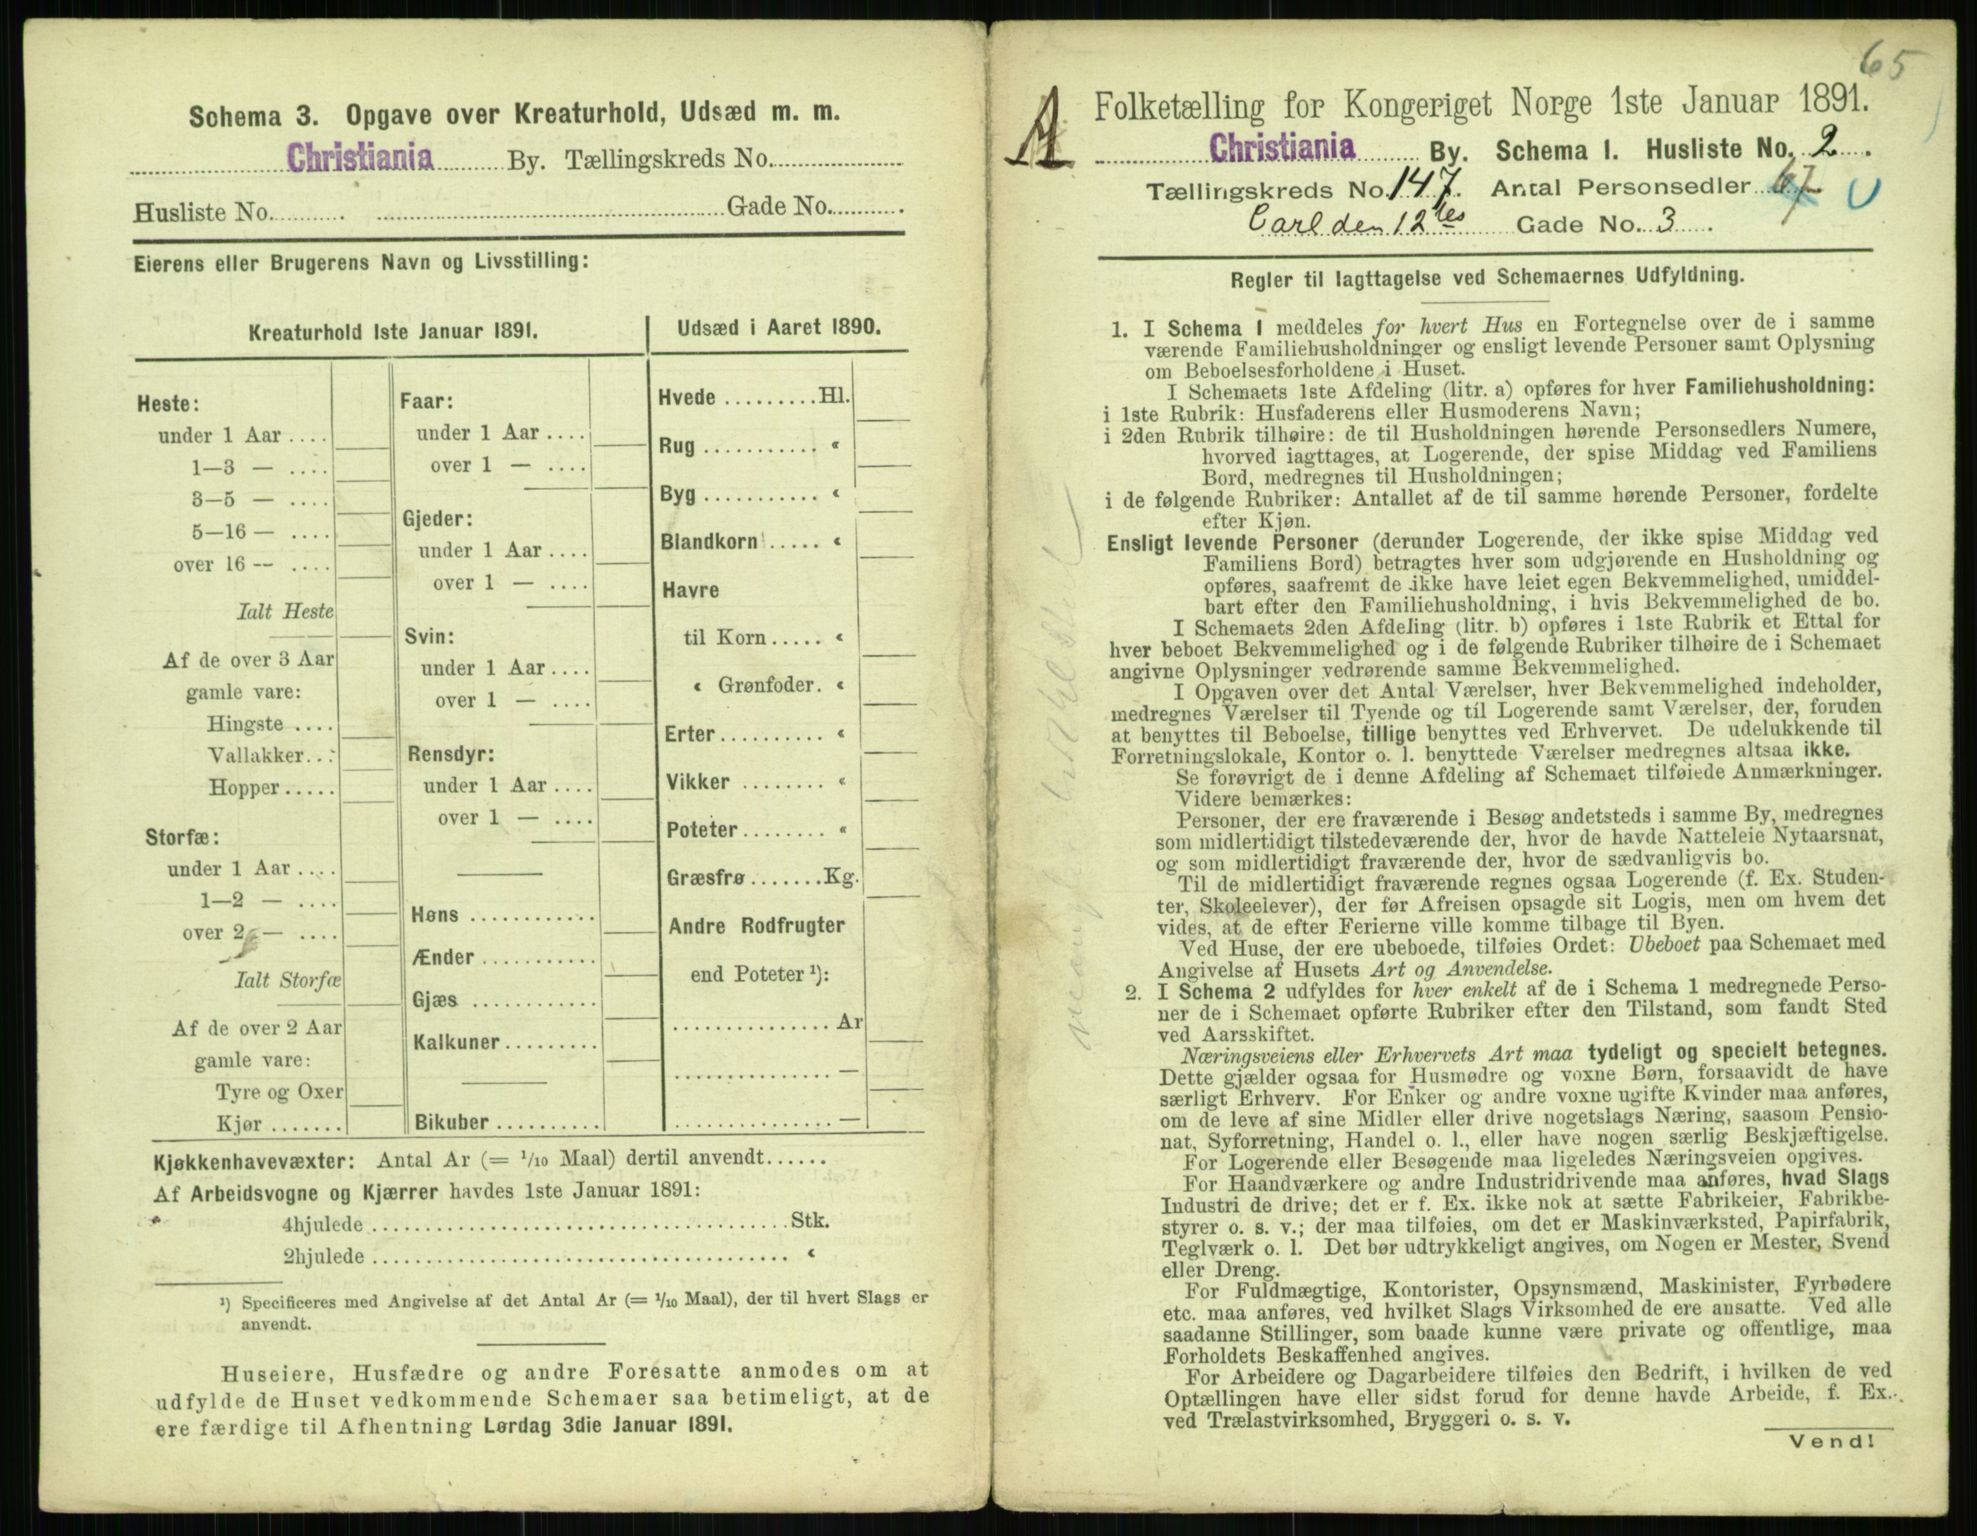 Schema 3. Opgave over Kreaturhold, Udsæd m. m.
Christiania By. Tællingskreds No.
Husliste No. Gade No.
Eierens eller Brugerens Navn og Livsstilling:
Kreaturhold 1ste Januar 1891.
Heste:
under 1 Aar ....
1—3 — ....
3—5 — ....
5—16 — ....
over 16 — ....
Ialt Heste
Af de over 3 Aar
gamle vare:
Hingste ....
Vallakker...
Hopper.....
Storfæ:
under 1 Aar ....
1—2 — ....
over 2 — ....
Ialt Storfæ
Af de over 2 Aar
gamle vare:
Tyre og Oxer
Kjør .......
Faar:
under 1 Aar ....
over 1 — ....
Gjeder:
under 1 Aar ....
over 1 — ....
Svin:
under 1 Aar ....
over 1 — ....
Rensdyr:
under 1 Aar ....
over 1 — ....
Høns ............
Ænder ...........
Gjæs ............
Kalkuner .........
Bikuber ..........
Udsæd i Aaret 1890.
Hvede .........Hl.
Rug ........... «
Byg ........... «
Blandkorn ..... «
Havre
til Korn..... «
« Grønfoder. «
Erter.......... «
Vikker ........ «
Poteter........ «
Græsfrø.......Kg.
Andre Rodfrugter
end Poteter ¹):
............... Ar
............... —
............... —
Kjøkkenhavevæxter: Antal Ar (= 1/10 Maal) dertil anvendt......
Af Arbeidsvogne og Kjærrer havdes 1ste Januar 1891:
4hjulede ....................................Stk.
2hjulede .................................... «
¹) Specificeres med Angivelse af det Antal Ar (= 1/10 Maal), der til hvert Slags er
anvendt.
Huseiere, Husfædre og andre Foresatte anmodes om at
udfylde de Huset vedkommende Schemaer saa betimeligt, at de
ere færdige til Afhentning Lørdag 3die Januar 1891.
65
A
Folketælling for Kongeriget Norge 1ste Januar 1891.
Christiania By. Schema 1. Husliste No. 2
Tællingskreds No. 147. Antal Personsedler 67
Carl den 12tes Gade No. 3
Regler til Iagttagelse ved Schemaernes Udfyldning.
1. I Schema 1 meddeles for hvert Hus en Fortegnelse over de i samme
værende Familiehusholdninger og ensligt levende Personer samt Oplysning
om Beboelsesforholdene i Huset.
I Schemaets 1ste Afdeling (litr. a) opføres for hver Familiehusholdning:
i 1ste Rubrik: Husfaderens eller Husmoderens Navn;
i 2den Rubrik tilhøire: de til Husholdningen hørende Personsedlers Numere,
hvorved iagttages, at Logerende, der spise Middag ved Familiens
Bord, medregnes til Husholdningen;
i de følgende Rubriker: Antallet af de til samme hørende Personer, fordelte
efter Kjøn.
Ensligt levende Personer (derunder Logerende, der ikke spise Middag ved
Familiens Bord) betragtes hver som udgjørende en Husholdning og
opføres, saafremt de ikke have leiet egen Bekvemmelighed, umiddel-
bart efter den Familiehusholdning, i hvis Bekvemmelighed de bo.
I Schemaets 2den Afdeling (litr. b) opføres i 1ste Rubrik et Ettal for
hver beboet Bekvemmelighed og i de følgende Rubriker tilhøire de i Schemaet
angivne Oplysninger vedrørende samme Bekvemmelighed.
I Opgaven over det Antal Værelser, hver Bekvemmelighed indeholder,
medregnes Værelser til Tyende og til Logerende samt Værelser, der, foruden
at benyttes til Beboelse, tillige benyttes ved Erhvervet. De udelukkende til
Forretningslokale, Kontor o. l. benyttede Værelser medregnes altsaa ikke.
Se forøvrigt de i denne Afdeling af Schemaet tilføiede Anmærkninger.
Videre bemærkes:
Personer, der ere fraværende i Besøg andetsteds i samme By, medregnes
som midlertidigt tilstedeværende der, hvor de havde Natteleie Nytaarsnat,
og som midlertidigt fraværende der, hvor de sædvanligvis bo.
Til de midlertidigt fraværende regnes ogsaa Logerende (f. Ex. Studen-
ter, Skoleelever), der før Afreisen opsagde sit Logis, men om hvem det
vides, at de efter Ferierne ville komme tilbage til Byen.
Ved Huse, der ere ubeboede, tilføies Ordet: Ubeboet paa Schemaet med
Angivelse af Husets Art og Anvendelse.
2. I Schema 2 udfyldes for hver enkelt af de i Schema 1 medregnede Perso-
ner de i Schemaet opførte Rubriker efter den Tilstand, som fandt Sted
ved Aarsskiftet.
Næringsveiens eller Erhvervets Art maa tydeligt og specielt betegnes.
Dette gjælder ogsaa for Husmødre og voxne Børn, forsaavidt de have
særligt Erhverv. For Enker og andre voxne ugifte Kvinder maa anføres,
om de leve af sine Midler eller drive nogetslags Næring, saasom Pensio-
nat, Syforretning, Handel o. l., eller have nogen særlig Beskjæftigelse.
For Logerende eller Besøgende maa ligeledes Næringsveien opgives.
For Haandværkere og andre Industridrivende maa anføres, hvad Slags
Industri de drive; det er f. Ex. ikke nok at sætte Fabrikeier, Fabrikbe-
styrer o. s. v.; der maa tilføies, om det er Maskinværksted, Papirfabrik,
Teglværk o. l. Det bør udtrykkeligt angives, om Nogen er Mester, Svend
eller Dreng.
For Fuldmægtige, Kontorister, Opsynsmænd, Maskinister, Fyrbødere
etc. maa anføres, ved hvilket Slags Virksomhed de ere ansatte. Ved alle
saadanne Stillinger, som baade kunne være private og offentlige, maa
Forholdets Beskaffenhed angives.
For Arbeidere og Dagarbeidere tilføies den Bedrift, i hvilken de ved
Optællingen have eller sidst forud for denne havde Arbeide, f. Ex.
ved Trælastvirksomhed, Bryggeri o. s. v.
Vend!